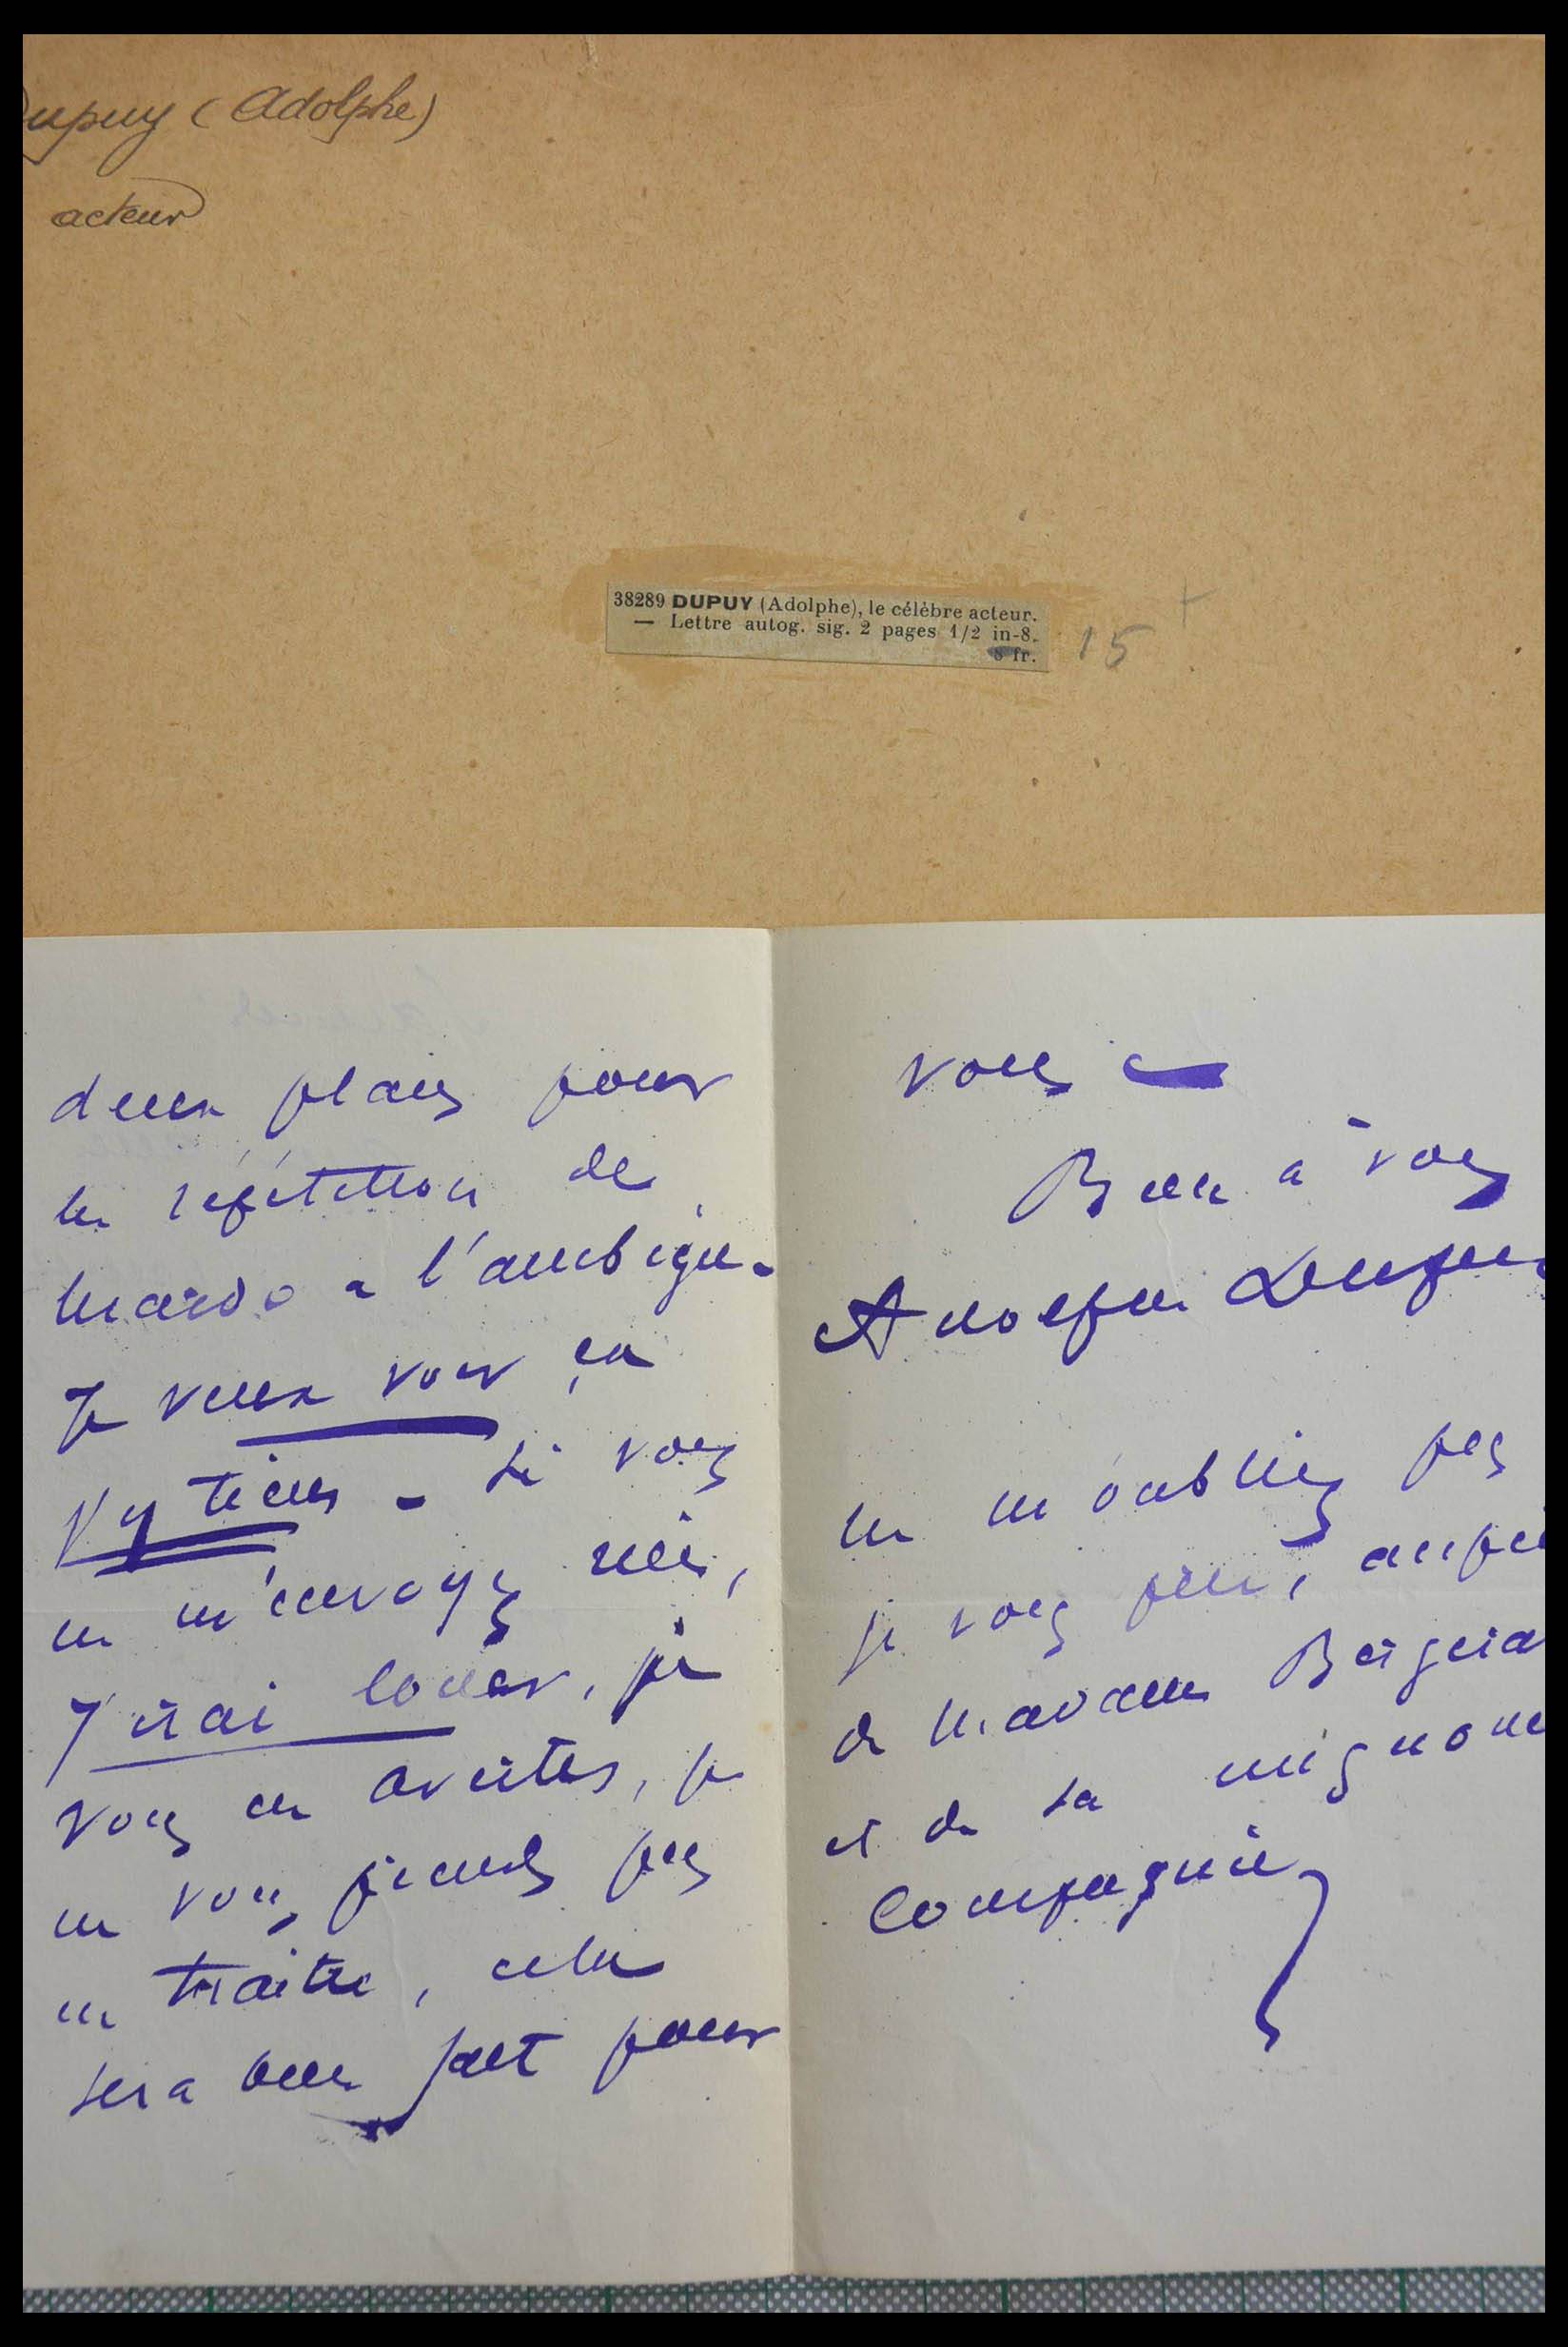 Dupuy (Adolphe)
acteur
38289 DUPUY (Adolphe), le célèbre acteur.
— Lettre autog. sig. 2 pages 1/2 in-8.
8 fr.
15
deux places pour
la répétition de
à l'ambigu -
Je veux voir ça
j'y tiens - si vous
ne m'envoyez rien,
J'irai louer, je
vous en avertis, je
ne vous prends pas
en traitre, cela
sera bien fait pour
vous -
Bien à vous
Adolphe Dupuy
ne m'oubliez pas
je vous prie, auprès
de madame Bergerat
et de sa mignonne
Compagnie